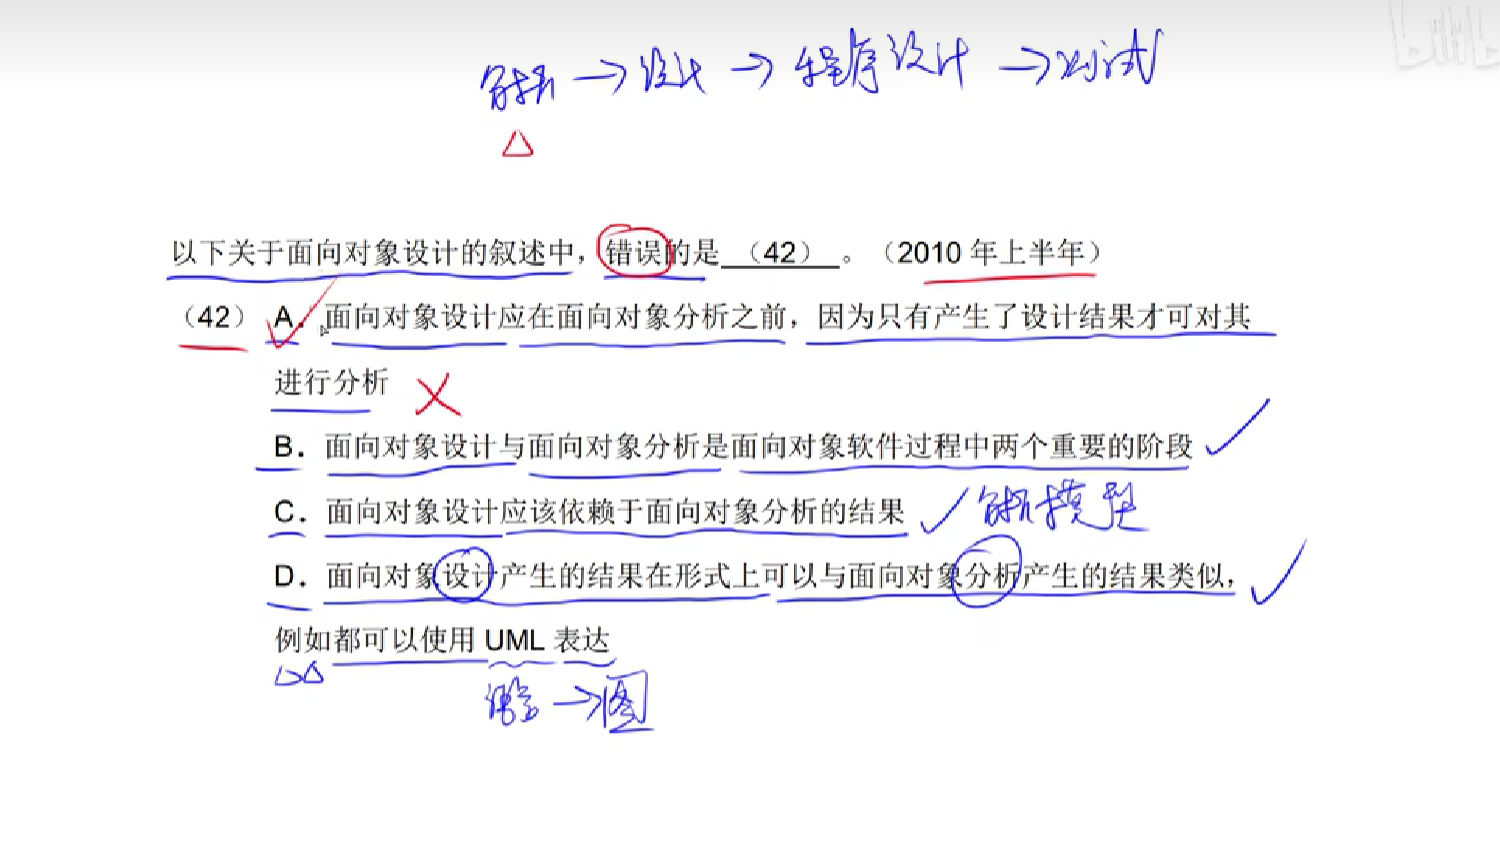 bilibili
分析→设计→程序设计→测试
以下关于面向对象设计的叙述中，错误的是 （42） 。（2010 年上半年）
（42） A．面向对象设计应在面向对象分析之前，因为只有产生了设计结果才可对其
进行分析
B．面向对象设计与面向对象分析是面向对象软件过程中两个重要的阶段
C．面向对象设计应该依赖于面向对象分析的结果 分析模型
D．面向对象设计产生的结果在形式上可以与面向对象分析产生的结果类似，
例如都可以使用 UML 表达
→图